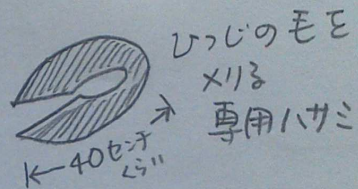 ひつじの毛を
刈る
専用ハサミ
40センチ
くらい